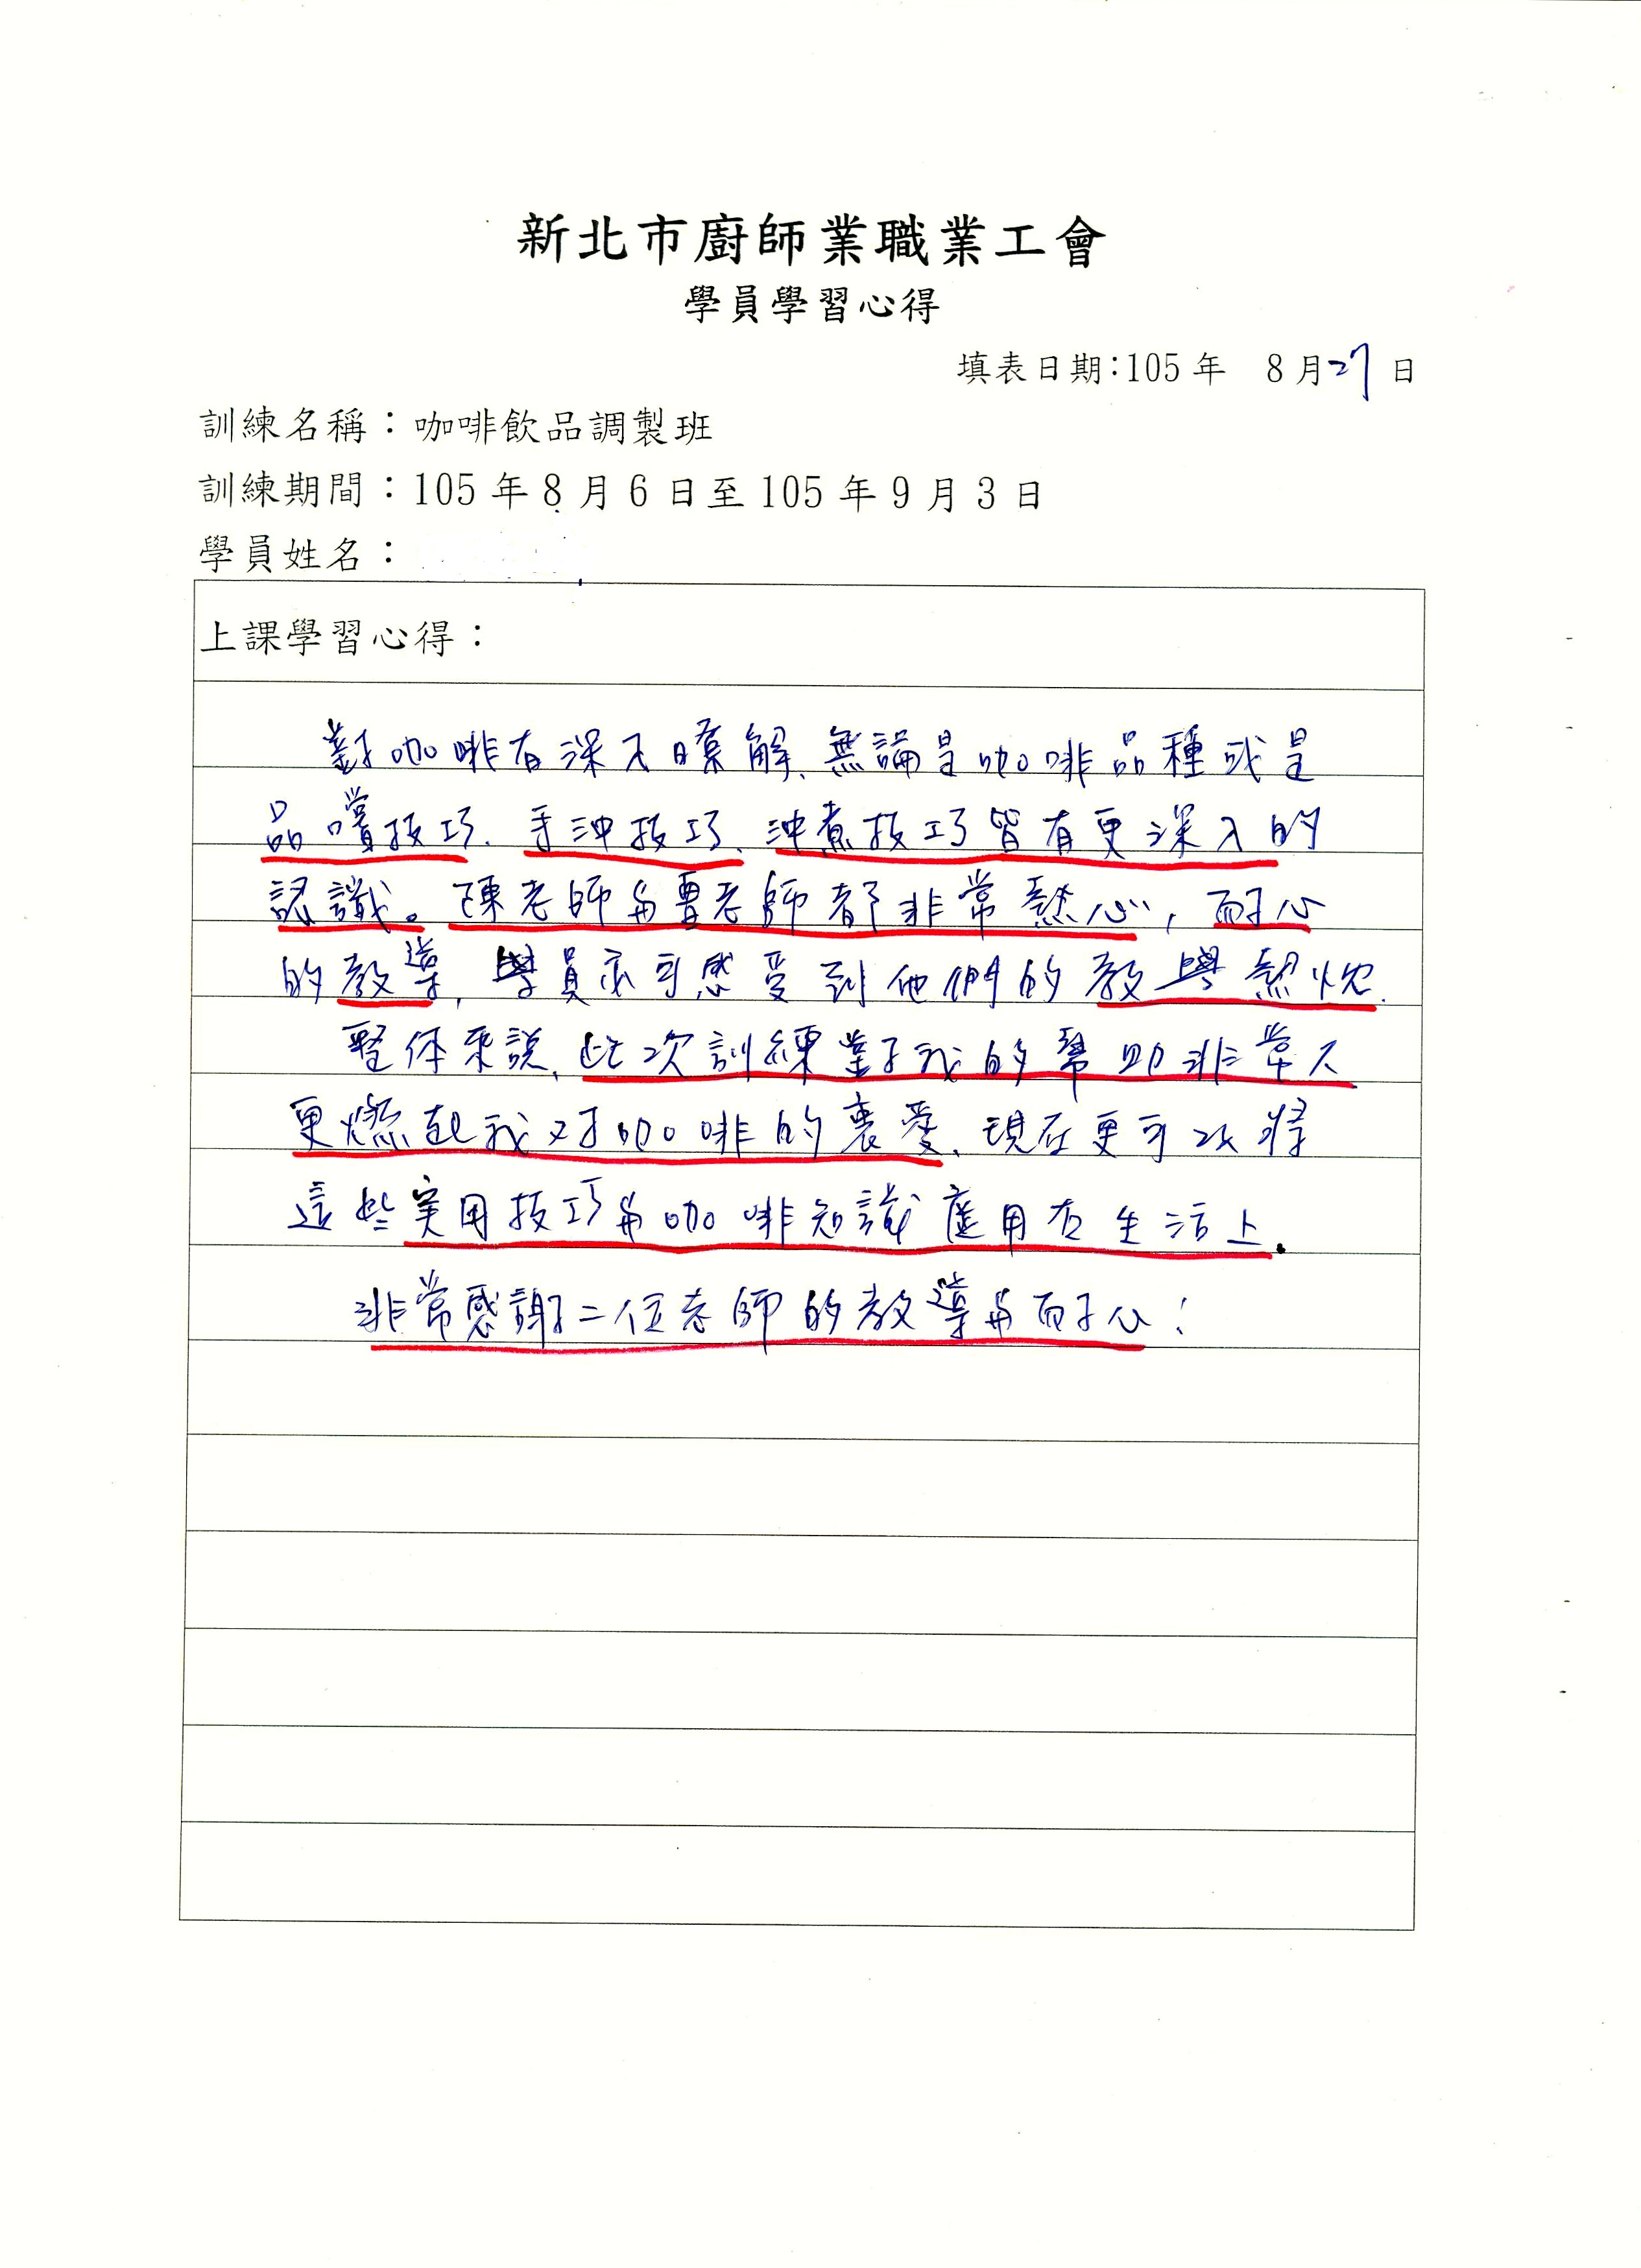 新北市廚師業職業工會
學員學習心得
填表日期:105年 8月27日
訓練名稱：咖啡飲品調製班
訓練期間：105年8月6日至105年9月3日
學員姓名：
上課學習心得：
對咖啡有深入瞭解、無論是咖啡品種或是
品嚐技巧、手沖技巧、沖煮技巧皆有更深入的
認識。陳老師與曹老師都非常熱心，耐心
的教導，學員亦可感受到他們的教學熱忱.
整体來說、此次訓練對我的幫助非常大
更燃起我对咖啡的喜愛、現在更可以將
這些実用技巧與咖啡知識應用在生活上.
非常感謝二位老師的教導與耐心！